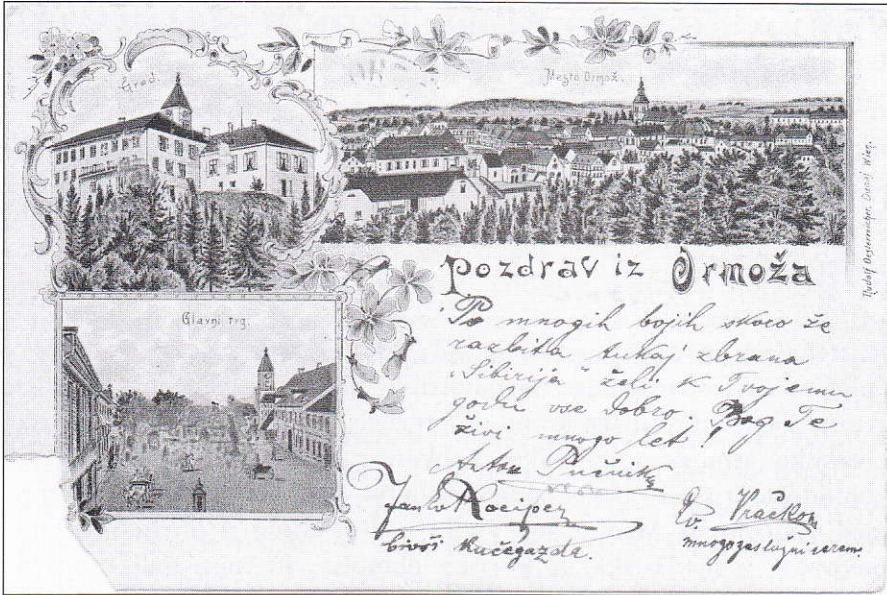 Grad.
Mesto Ormož.
Rudolf Oesterreicher, Dunaj Wien.
Pozdrav iz Ormoža
Glavni trg.
Po mnogih bojih skoro že
razbita tukaj zbrana
„Sibirija“ želi k Tvojemu
godu vse dobro. Bog Te
živi mnogo let!
Anton Pučnik
Janko Kociper
bivši kučegazda.
Vračko
mnogozaslužni